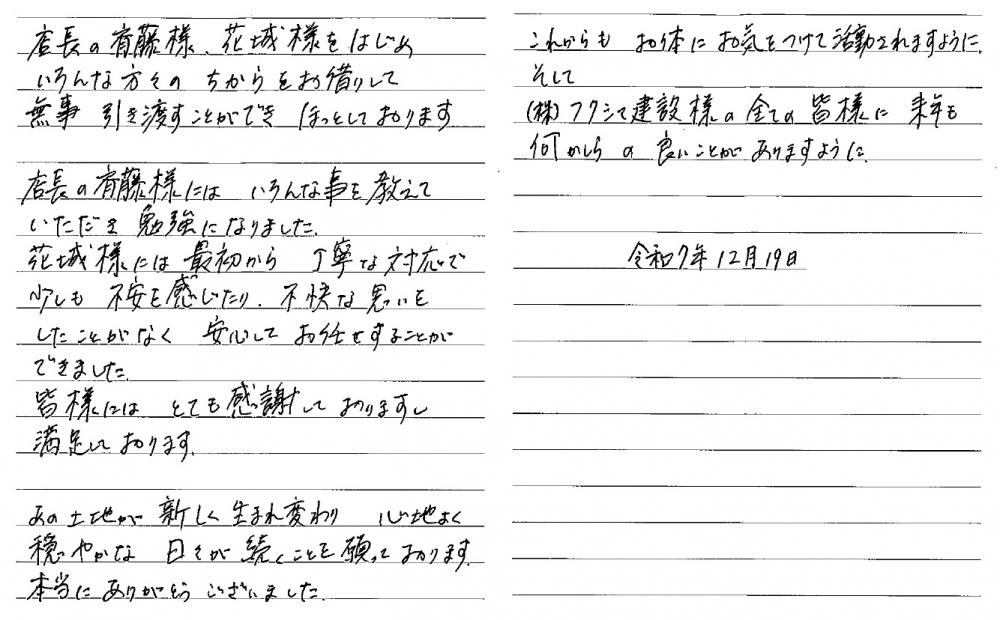 店長の斉藤様、花城様をはじめ
いろんな方々の ちからをお借りして
無事 引き渡すことができ ほっとしております
店長の斉藤様には いろんな事を教えて
いただき 勉強になりました。
花城様には 最初から 丁寧な対応で
少しも 不安を感じたり、不快な思いを
したことがなく 安心して お任せすることが
できました。
皆様には とても感謝して おりますし
満足して おります。
あの土地が 新しく生まれ変わり 心地よく
穏やかな 日々が 続くことを願って おります。
本当に ありがとう ございました。
これからも お体に お気をつけて活動されますように。
そして
(株)フクシマ建設様の全ての 皆様に 来年も
何かしらの 良いことが ありますように。
令和7年12月19日